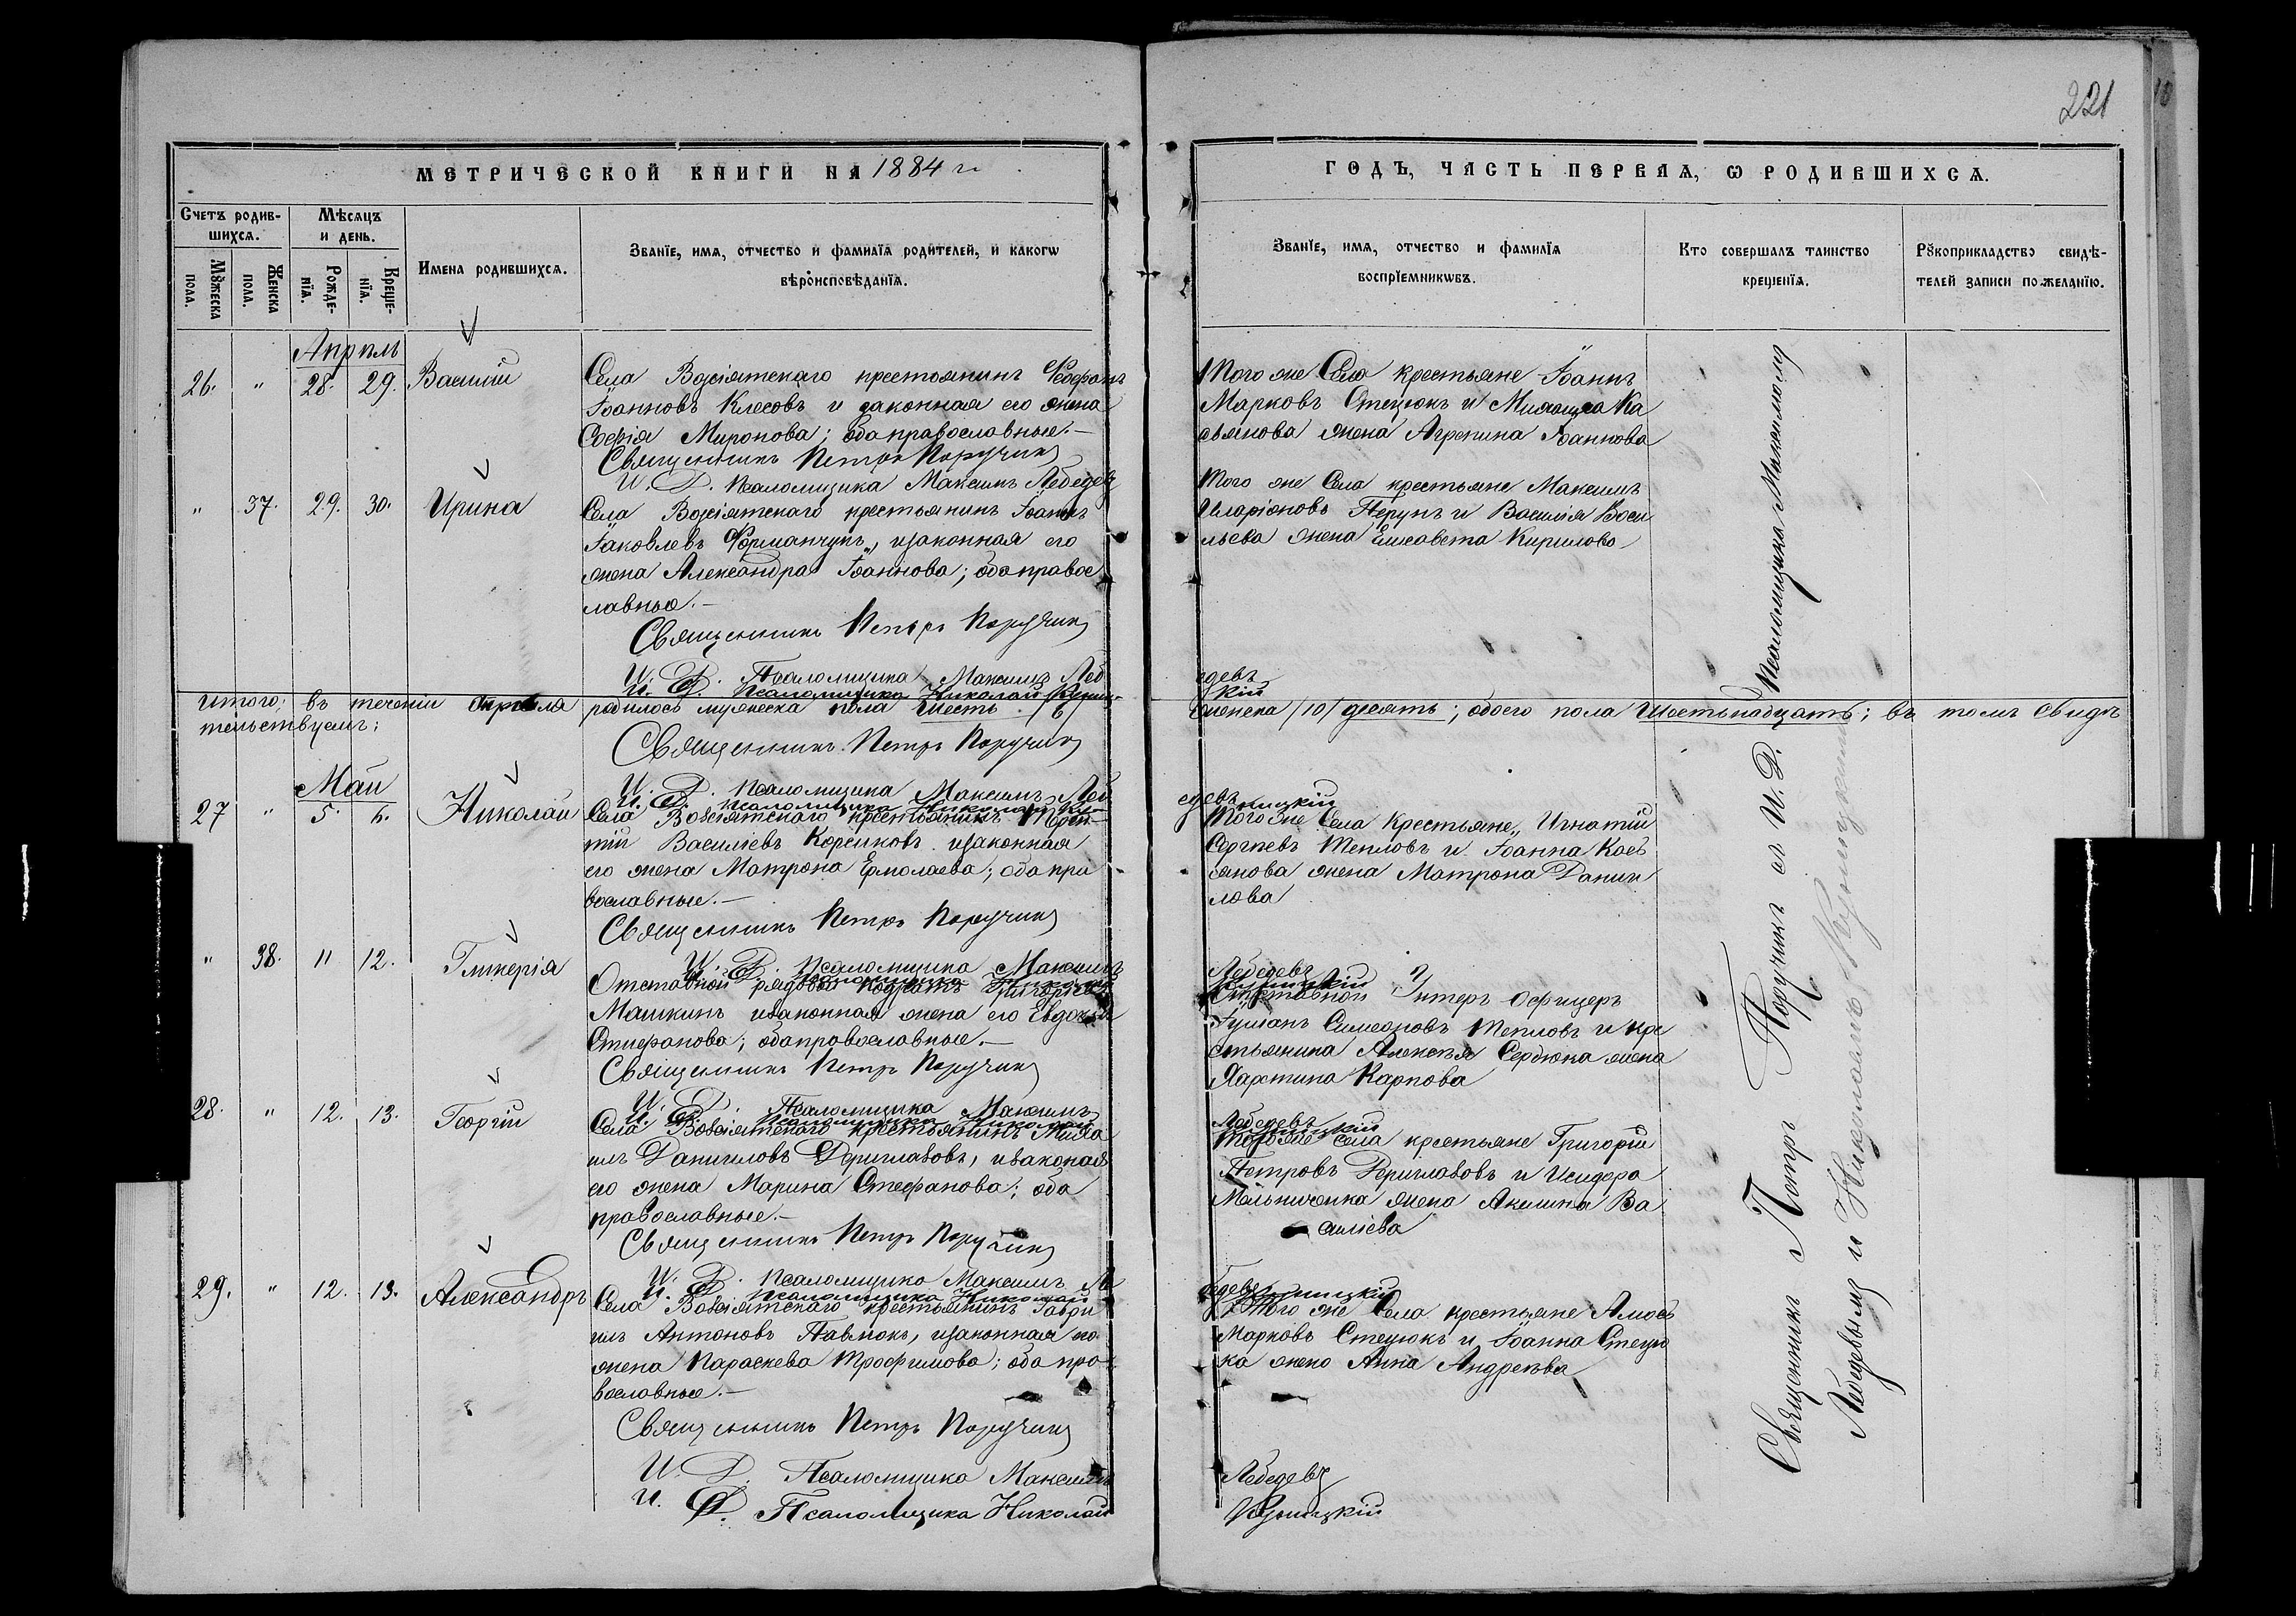 221
МЕТРИЧЕСКОЙ КНИГИ НА 1884 г.
Счетъ родившихся.
Мѣсяцъ и день.
Имена родившихся.
Званїе, имя, отчество и фамилїя родителей, и какогѡ
вѣроисповѣданїя.
Мꙋжеска пола.
Женска пола.
Рожденїя.
Крещенїя.
ГОДЪ, ЧАСТЬ ПЕРВАЯ, Ѡ РОДИВШИХСЯ.
Званїе, имя, отчество и фамилїя
воспрїемникѡвъ.
Кто совершалъ таинство
крещенїя.
Рꙋкоприкладство свидѣ-
телей записи по желанїю.
Апрѣль
26. " 28. 29. Василій
Села Возсіятскаго крестьянинъ Феофанъ
Іоанновъ Клесовъ и законная его жена
Софія Миронова; оба православные.—
Священникъ Петръ Поручикъ
И. Д. Псаломщика Максимъ Лебедевъ
Того же Села крестьяне Іоаннъ
Марковъ Стецюкъ и Михаила Ка
сьянова жена Агрепина Іоаннова
" 37. 29. 30. Ирина
Села Возсіятскаго крестьянинъ Іоаннъ
Іаковлевъ Форманчукъ, изаконная его
жена Александра Іоаннова; оба правос
лавные.—
Священникъ Петръ Поручикъ
И. Д. Псаломщика Максимъ Леб
едевъ
И. Д. Псаломщика Николай
Того же Села крестьяне Максимъ
Иларіоновъ Перунъ и Василія Васи
льева жена Елисавета Кирилова
Итого; въ теченіи Апрѣля родилось мужеска пола шесть /6/ женска /10/ десять; обоего пола Шестьнадцать; въ томъ свидѣ
тельствуемъ:
Священникъ Петръ Поручикъ
И. Д. Псаломщика Максимъ Леб
едевъ
И. Д. Псаломщика Николай
Май
27 " 5. 6. Николай
Села Возсіятскаго крестьянинъ Терен-
тій Василіевъ Корсиковъ изаконная
его жена Матрона Ермолаева; оба пра
вославные.—
Священникъ Петръ Поручикъ
И. Д. Псаломщика Максимъ
Лебедевъ
Того же Села Крестьяне, Игнатій
Сергѣевъ Тепловъ и Іоанна Кась
янова жена Матрона Дании
лова
" 38. 11 12. Гликерія
Отставной рядовой Кодратъ Григоріевъ
Машкинъ изаконная жена его Евдокія
Стефанова; оба православные.—
Священникъ Петръ Поручикъ
И. Д. Псаломщика Максимъ
Лебедевъ
Отставной Унтеръ Офицеръ
Іуліанъ Симеоновъ Тепловъ и кре
стьянина Алексѣя Сердюка жена
Харстина Карпова
28. " 12. 13. Георгій
Села Возсіятскаго крестьянинъ Миха
илъ Даниловъ Дериглазовъ, изаконая
его жена Марина Стефанова; оба
православные.—
Священникъ Петръ Поручикъ
И. Д. Псаломщика Максимъ Ле
бедевъ
Того же Села крестьяне Григорій
Петровъ Дериглазовъ и Исидора
Мельниченка жена Акилина Ва
силіева
29. " 12. 13. Александръ
Села Возсіятскаго крестьянинъ Гаври
илъ Антоновъ Павлюкъ, изаконная его
жена Параскева Трофимова; оба пра
вославные.—
Священникъ Петръ Поручикъ
И. Д. Псаломщика Максимъ
Лебедевъ
И. Д. Псаломщика Николай
Кузницкій
Того же Села крестьяне Амосъ
Марковъ Стецюкъ и Іоанна Стецю
ка жена Анна Андреѣва
Священникъ Петръ Поручикъ съ И. Д. Псаломщика Максимомъ
Лебедевымъ и Николаемъ Кузницкимъ